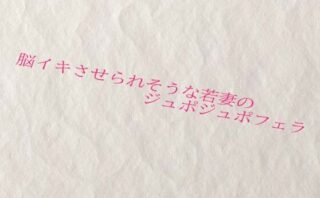 脳イキさせられそうな若妻の
ジュポジュポフェラ